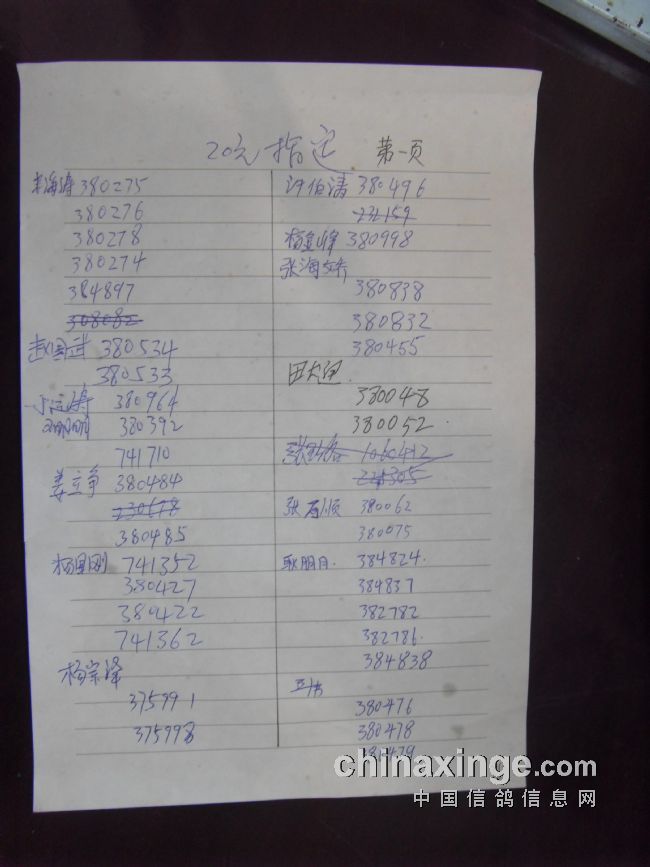 20元指定 第一页
海涛 380275
380276
380278
380274
384897
308082
赵国进 380534
380533
380964
380392
741710
姜立争 380484
230678
380485
杨国刚 741352
380427
380422
741362
杨宗泽
375991
375998
许伯涛 380496
232159
杨金峰 380998
张海
380838
380832
380455
田
380048
380052
1060412
221305
张石顺 380062
380075
耿明月 384824
384837
382782
382786
384838
380476
380478
380479
chinaxinge.com
中国信鸽信息网